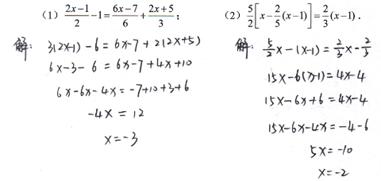 (1) (2x-1)/2 -1 = (6x-7)/6 + (2x+5)/3;
解: 3(2x-1)-6=6x-7+2(2x+5)
6x-3-6=6x-7+4x+10
6x-6x-4x=-7+10+3+6
-4x=12
x=-3
(2) 5/2[x-2/5(x-1)]=2/3(x-1).
解: 5/2x-(x-1)=2/3x-2/3
15x-6(x-1)=4x-4
15x-6x+6=4x-4
15x-6x-4x=-4-6
5x=-10
x=-2